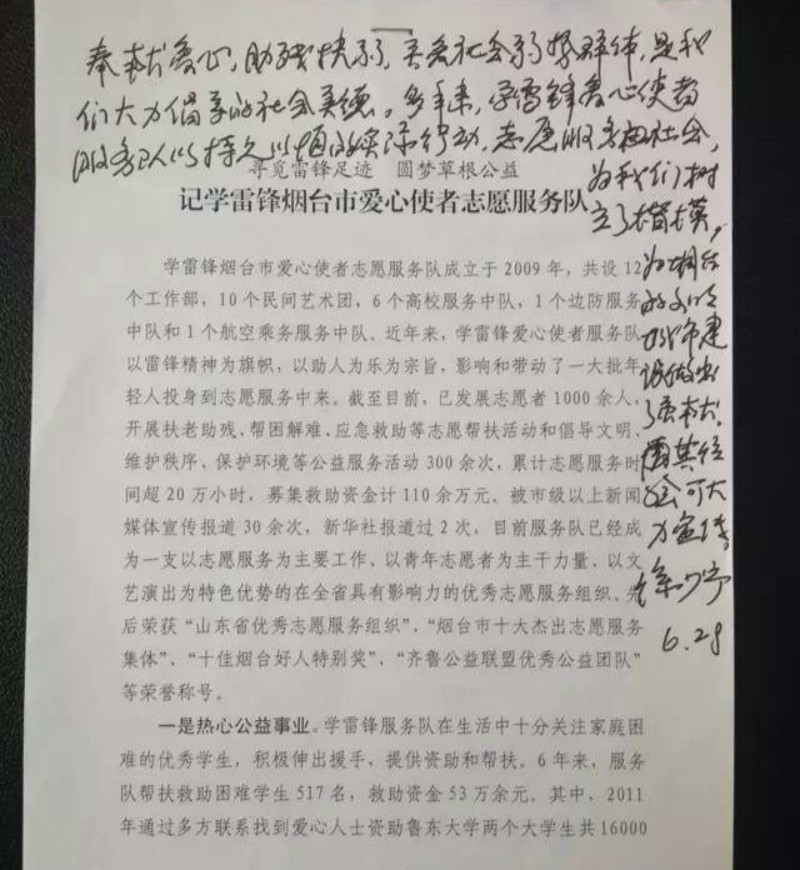 奉献爱心，助残扶弱，关爱社会弱势群体，是我
们大力倡导的社会美德。多年来，学雷锋爱心使者
服务队以持之以恒的实际行动，志愿服务社会，
为我们树
立了榜样，
为烟台
的文明
城市建
设做出
了奉献，
其经
可大
力宣传。
6.29
寻觅雷锋足迹　圆梦草根公益
记学雷锋烟台市爱心使者志愿服务队
学雷锋烟台市爱心使者志愿服务队成立于 2009 年，共设 12
个工作部，10 个民间艺术团，6 个高校服务中队，1 个边防服务
中队和 1 个航空乘务服务中队。近年来，学雷锋爱心使者服务队
以雷锋精神为旗帜，以助人为乐为宗旨，影响和带动了一大批年
轻人投身到志愿服务中来。截至目前，已发展志愿者 1000 余人，
开展扶老助残、帮困解难、应急救助等志愿帮扶活动和倡导文明、
维护秩序、保护环境等公益服务活动 300 余次，累计志愿服务时
间超 20 万小时，募集救助资金计 110 余万元。被市级以上新闻
媒体宣传报道 30 余次，新华社报道过 2 次，目前服务队已经成
为一支以志愿服务为主要工作、以青年志愿者为主干力量、以文
艺演出为特色优势的在全省具有影响力的优秀志愿服务组织。先
后荣获“山东省优秀志愿服务组织”、“烟台市十大杰出志愿服务
集体”、“十佳烟台好人特别奖”、“齐鲁公益联盟优秀公益团队”
等荣誉称号。
一是热心公益事业。学雷锋服务队在生活中十分关注家庭困
难的优秀学生，积极伸出援手，提供资助和帮扶。6 年来，服务
队帮扶救助困难学生 517 名，救助资金 53 万余元。其中，2011
年通过多方联系找到爱心人士资助鲁东大学两个大学生共 16000